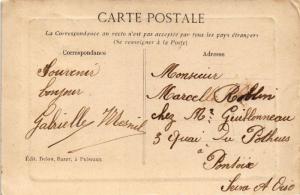 CARTE POSTALE
La Correspondance au recto n'est pas acceptée par tous les pays étrangers
(Se renseigner à la Poste)
Correspondance
Adresse
Souvenir
bonjour
Gabrielle Mesnil
Monsieur
Marcel Roblin
chez Mr Guillonneau
5 Quai Du Pothuis
à Pontoise
Seine & Oise
Édit. Baret, à Puiseaux